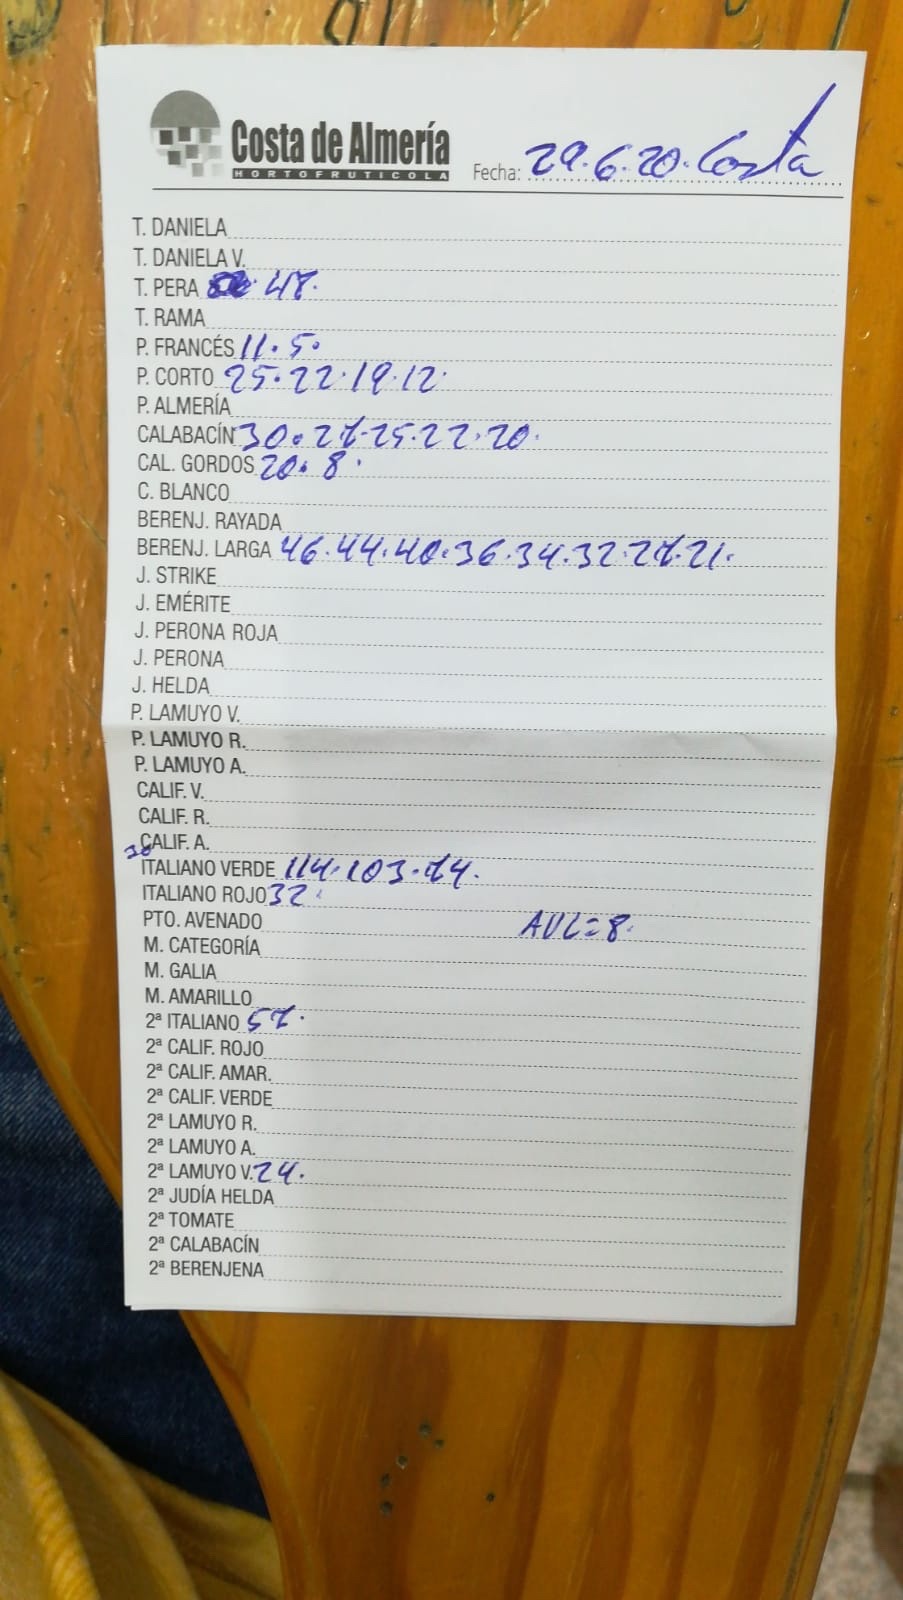 Costa de Almería
HORTOFRUTICOLA
Fecha: 29.6.20. Costa
T. DANIELA
T. DANIELA V.
T. PERA 47.
T. RAMA
P. FRANCÉS 11. 5.
P. CORTO 25. 22. 19. 12.
P. ALMERÍA
CALABACÍN 30. 27. 25. 22. 20.
CAL. GORDOS 20. 8.
C. BLANCO
BERENJ. RAYADA
BERENJ. LARGA 46. 44. 40. 36. 34. 32. 27. 21.
J. STRIKE
J. EMÉRITE
J. PERONA ROJA
J. PERONA
J. HELDA
P. LAMUYO V.
P. LAMUYO R.
P. LAMUYO A.
CALIF. V.
CALIF. R.
CALIF. A.
ITALIANO VERDE 114. 103. 74.
ITALIANO ROJO 32.
PTO. AVENADO AVL=8.
M. CATEGORÍA
M. GALIA
M. AMARILLO
2ª ITALIANO 57.
2ª CALIF. ROJO
2ª CALIF. AMAR.
2ª CALIF. VERDE
2ª LAMUYO R.
2ª LAMUYO A.
2ª LAMUYO V. 24.
2ª JUDÍA HELDA
2ª TOMATE
2ª CALABACÍN
2ª BERENJENA